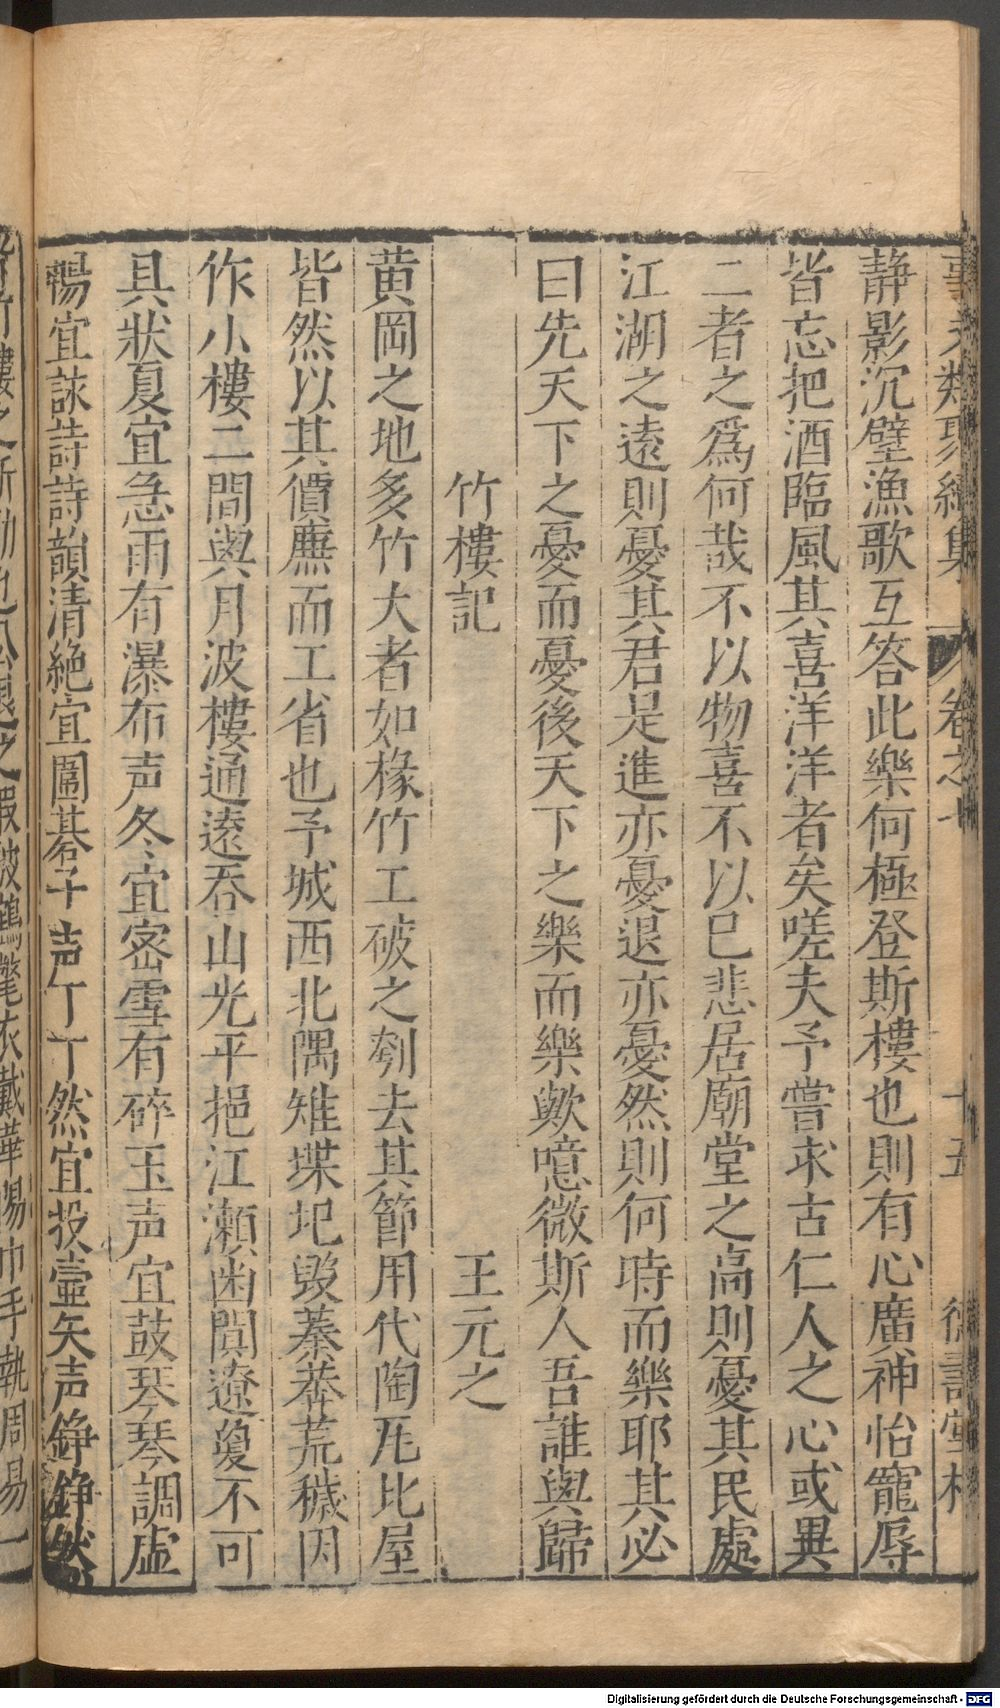 事文類聚續集 卷之七 十五 德壽堂梓
静影沉璧漁歌互答此樂何極登斯樓也則有心廣神怡寵辱
皆忘把酒臨風其喜洋洋者矣嗟夫予嘗求古仁人之心或異
二者之爲何哉不以物喜不以已悲居廟堂之高則憂其民處
江湖之遠則憂其君是進亦憂退亦憂然則何時而樂耶其必
曰先天下之憂而憂後天下之樂而樂歟噫微斯人吾誰與歸
竹樓記 王元之
黄岡之地多竹大者如椽竹工破之刳去其節用代陶瓦比屋
皆然以其價廉而工省也予城西北隅雉堞圮毁蓁莽荒穢因
作小樓二間與月波樓通遠吞山光平挹江瀨幽闃遼夐不可
具狀夏宜急雨有瀑布声冬宜宻雪有碎玉声宜鼓琴琴調虛
暢宜詠詩詩韻清絶宜圍碁子声丁丁然宜投壷矢声錚錚然
Digitalisierung gefördert durch die Deutsche Forschungsgemeinschaft - DFG